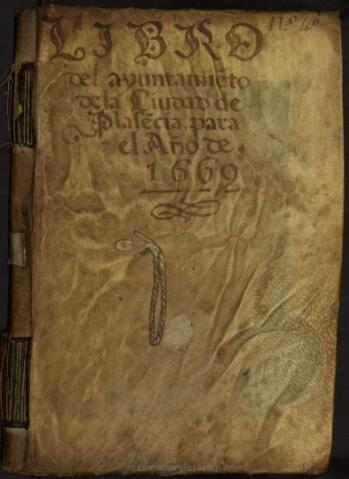 LIBRO
del ayuntamiẽto
de la Ciudad de
Plasẽcia, para
el Año de
1669